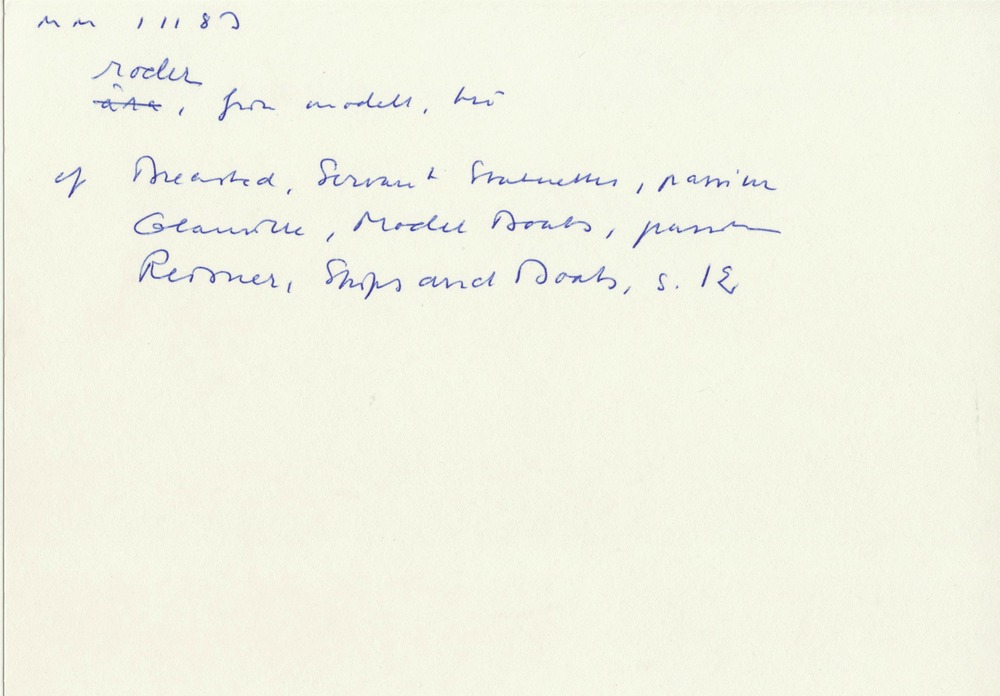 MM 11183
roder
åra, från modell, trä
cf Breasted, Servant Statuettes, passim
Glanville, Model Boats, passim
Reisner, Ships and Boats, s. 12